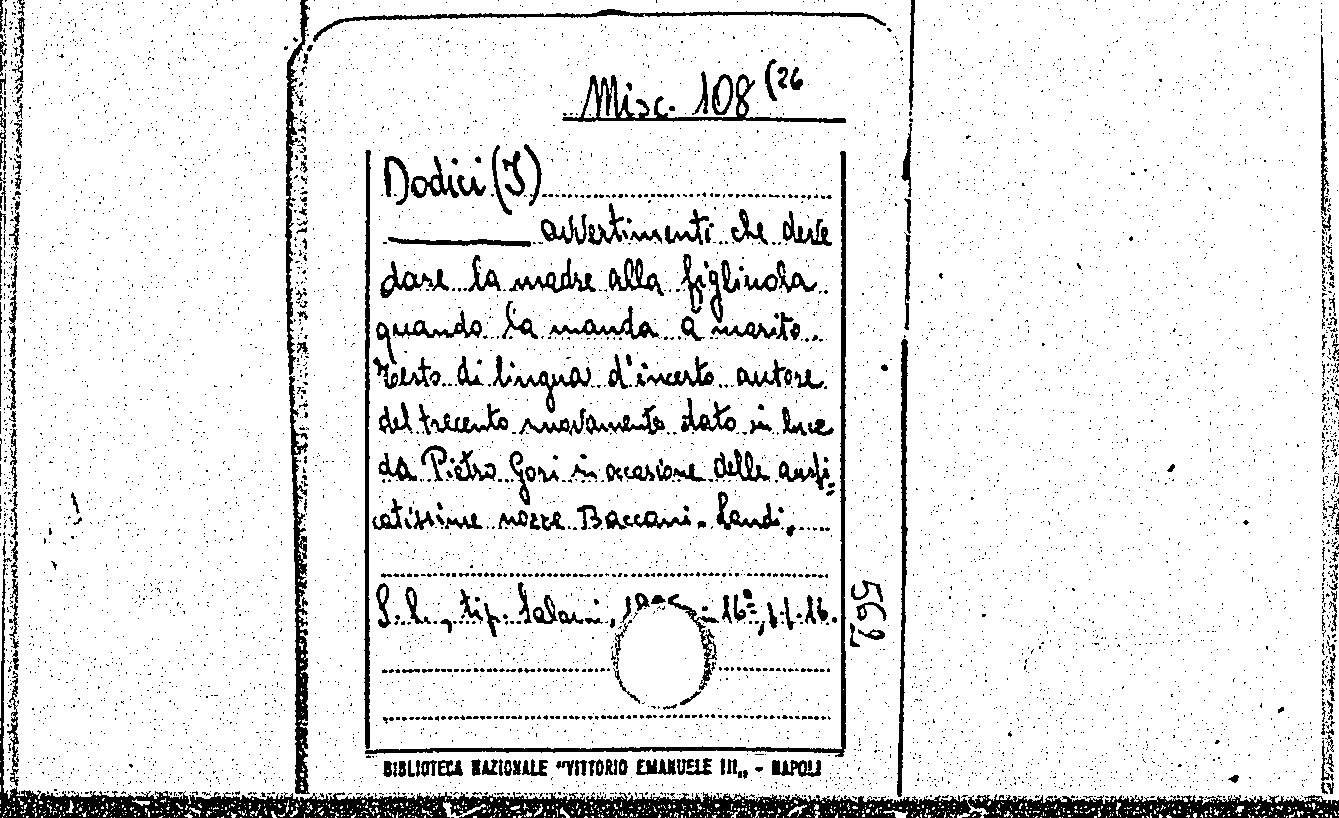 Misc. 108 (26
Dodici (I)
avvertimenti che deve
dare la madre alla figliuola
quando la manda a marito.
Testo di lingua d'incerto autore
del trecento nuovamente dato in luce
da Pietro Gori in occasione delle auspi=
catissime nozze Baccani - Landi,
S. L., tip. Salani, - 16º, p.p. 16.
562
BIBLIOTECA NAZIONALE "VITTORIO EMANUELE III„ - NAPOLI